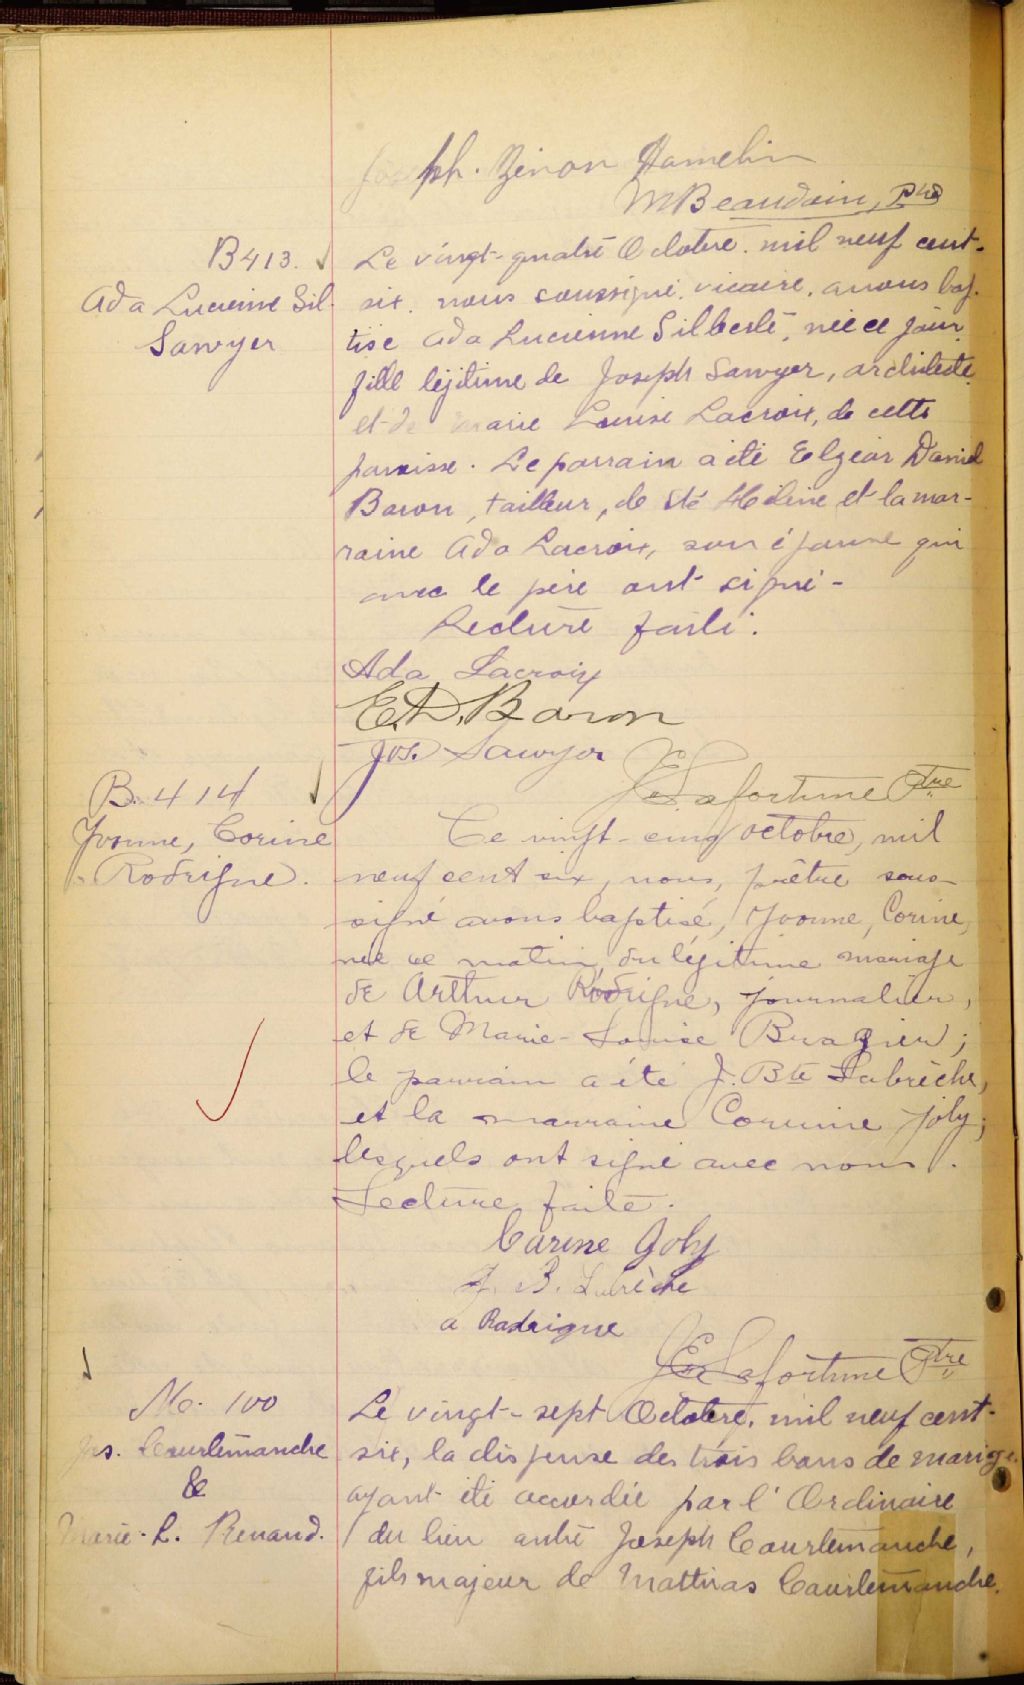 Joseph. Zénon Hamelin
MBeaudoin, Ptre
B 413.
Ada Lucienne Sil.
Sawyer
Le vingt-quatre Octobre. mil neuf cent-
six. nous soussigné. vicaire. avons bap-
tisé Ada Lucienne Silberte, née ce jour,
fille légitime de Joseph Sawyer, architecte
et de Marie Louise Lacroix, de cette
paroisse. Le parrain a été Elzéar Daniel
Baron, tailleur, de Ste Hélène et la mar-
raine Ada Lacroix, son épouse qui
avec le père ont signé-
Lecture faite.
Ada Lacroix
E.D. Baron
Jos. Sawyer
JELafortune Ptre
B. 414
Yvonne, Corine
Rodrigue.
Ce vingt-cinq octobre, mil
neuf cent six, nous, prêtre sous-
signé avons baptisé, Yvonne, Corine,
née ce matin, du légitime mariage
de Arthur Rodrigue, journalier,
et de Marie-Louise Brazier;
le parrain a été J. Bte Labrèche,
et la marraine Corinne Joly;
lesquels ont signé avec nous.
Lecture faite.
Corine Joly
J. B. Labrèche
a Rodrigue
JELafortune Ptre
M. 100
Jos. Courtemanche
&
Marie-L. Renaud.
Le vingt-sept Octobre, mil neuf cent-
six, la dispense des trois bans de mariage
ayant été accordée par l'Ordinaire
du lieu entre Joseph Courtemanche,
fils majeur de Mathias Courtemanche.